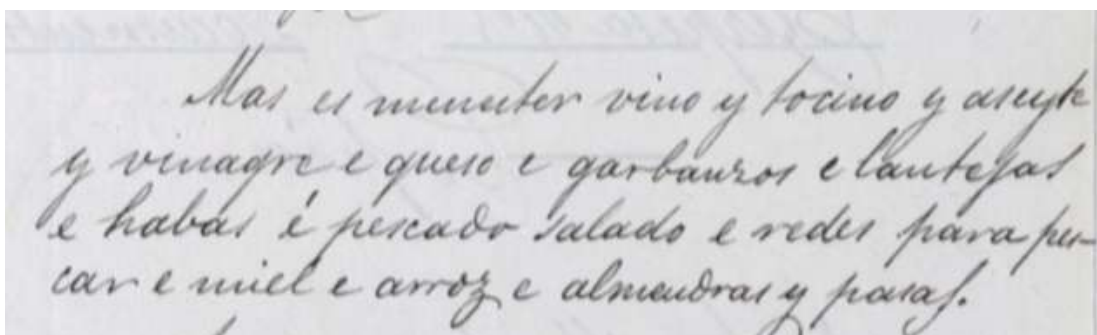 Mas es menester vino y tocino y aseyte
y vinagre e queso e garbanzos e lantejas
e habas é pescado salado e redes para pes-
car e miel e arroz e almendras y pasas.